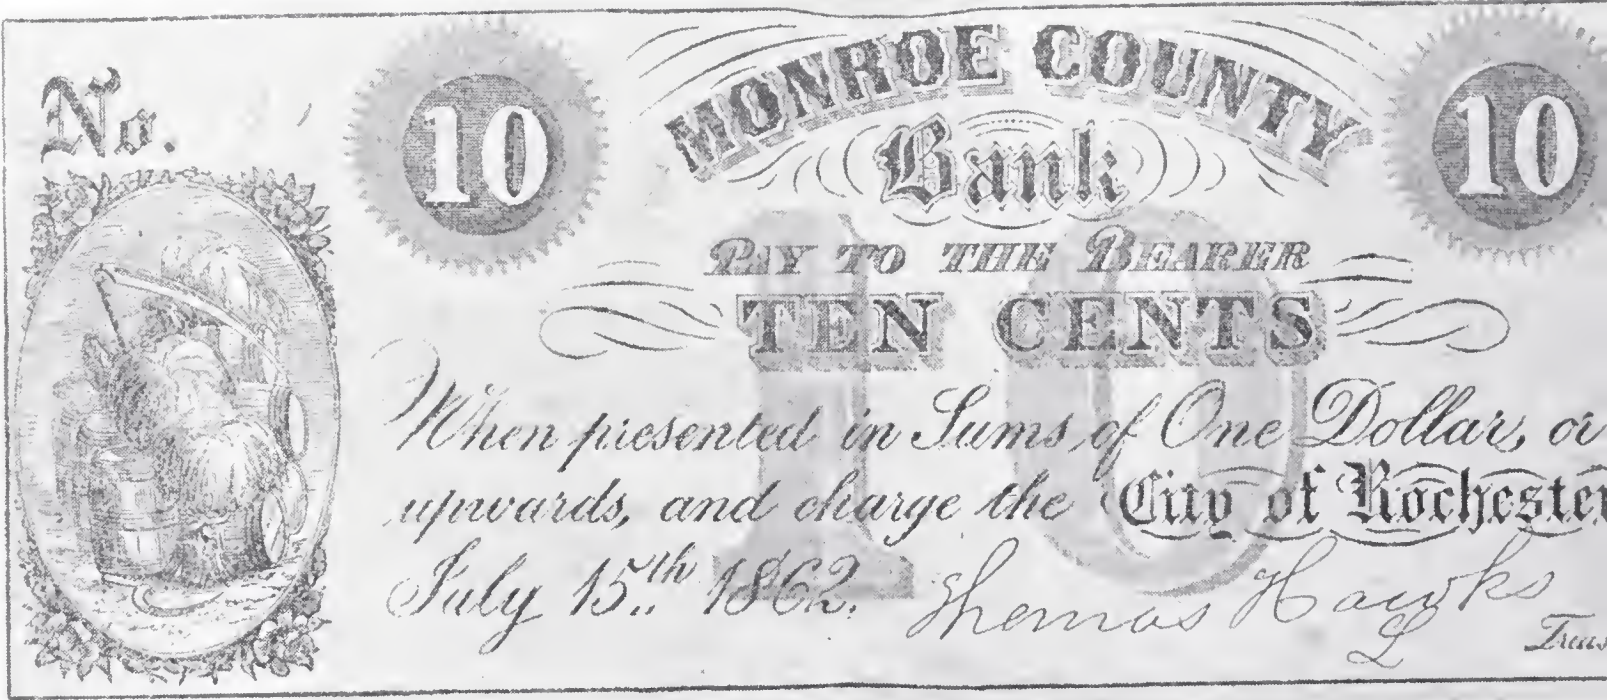 No.
10
MONROE COUNTY
10
Bank
PAY TO THE BEARER
TEN CENTS
10
When presented in Sums of One Dollar, or
upwards, and charge the City of Rochester
July 15th 1862. Thomas Hawks
Treas